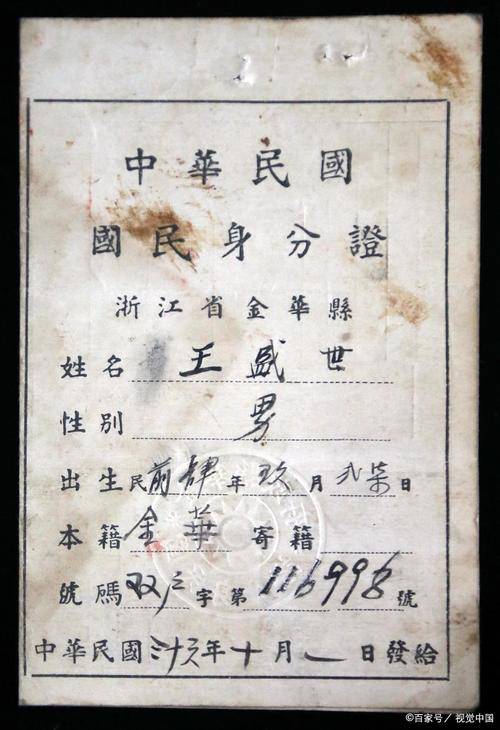 中華民國
國民身分證
浙江省金華縣
姓名 王盛世
性別 男
出生民前肆年玖月弍柒日
本籍金華 寄籍
號碼双字第116998號
中華民國三十六年十月一日發給
©百家号／视觉中国